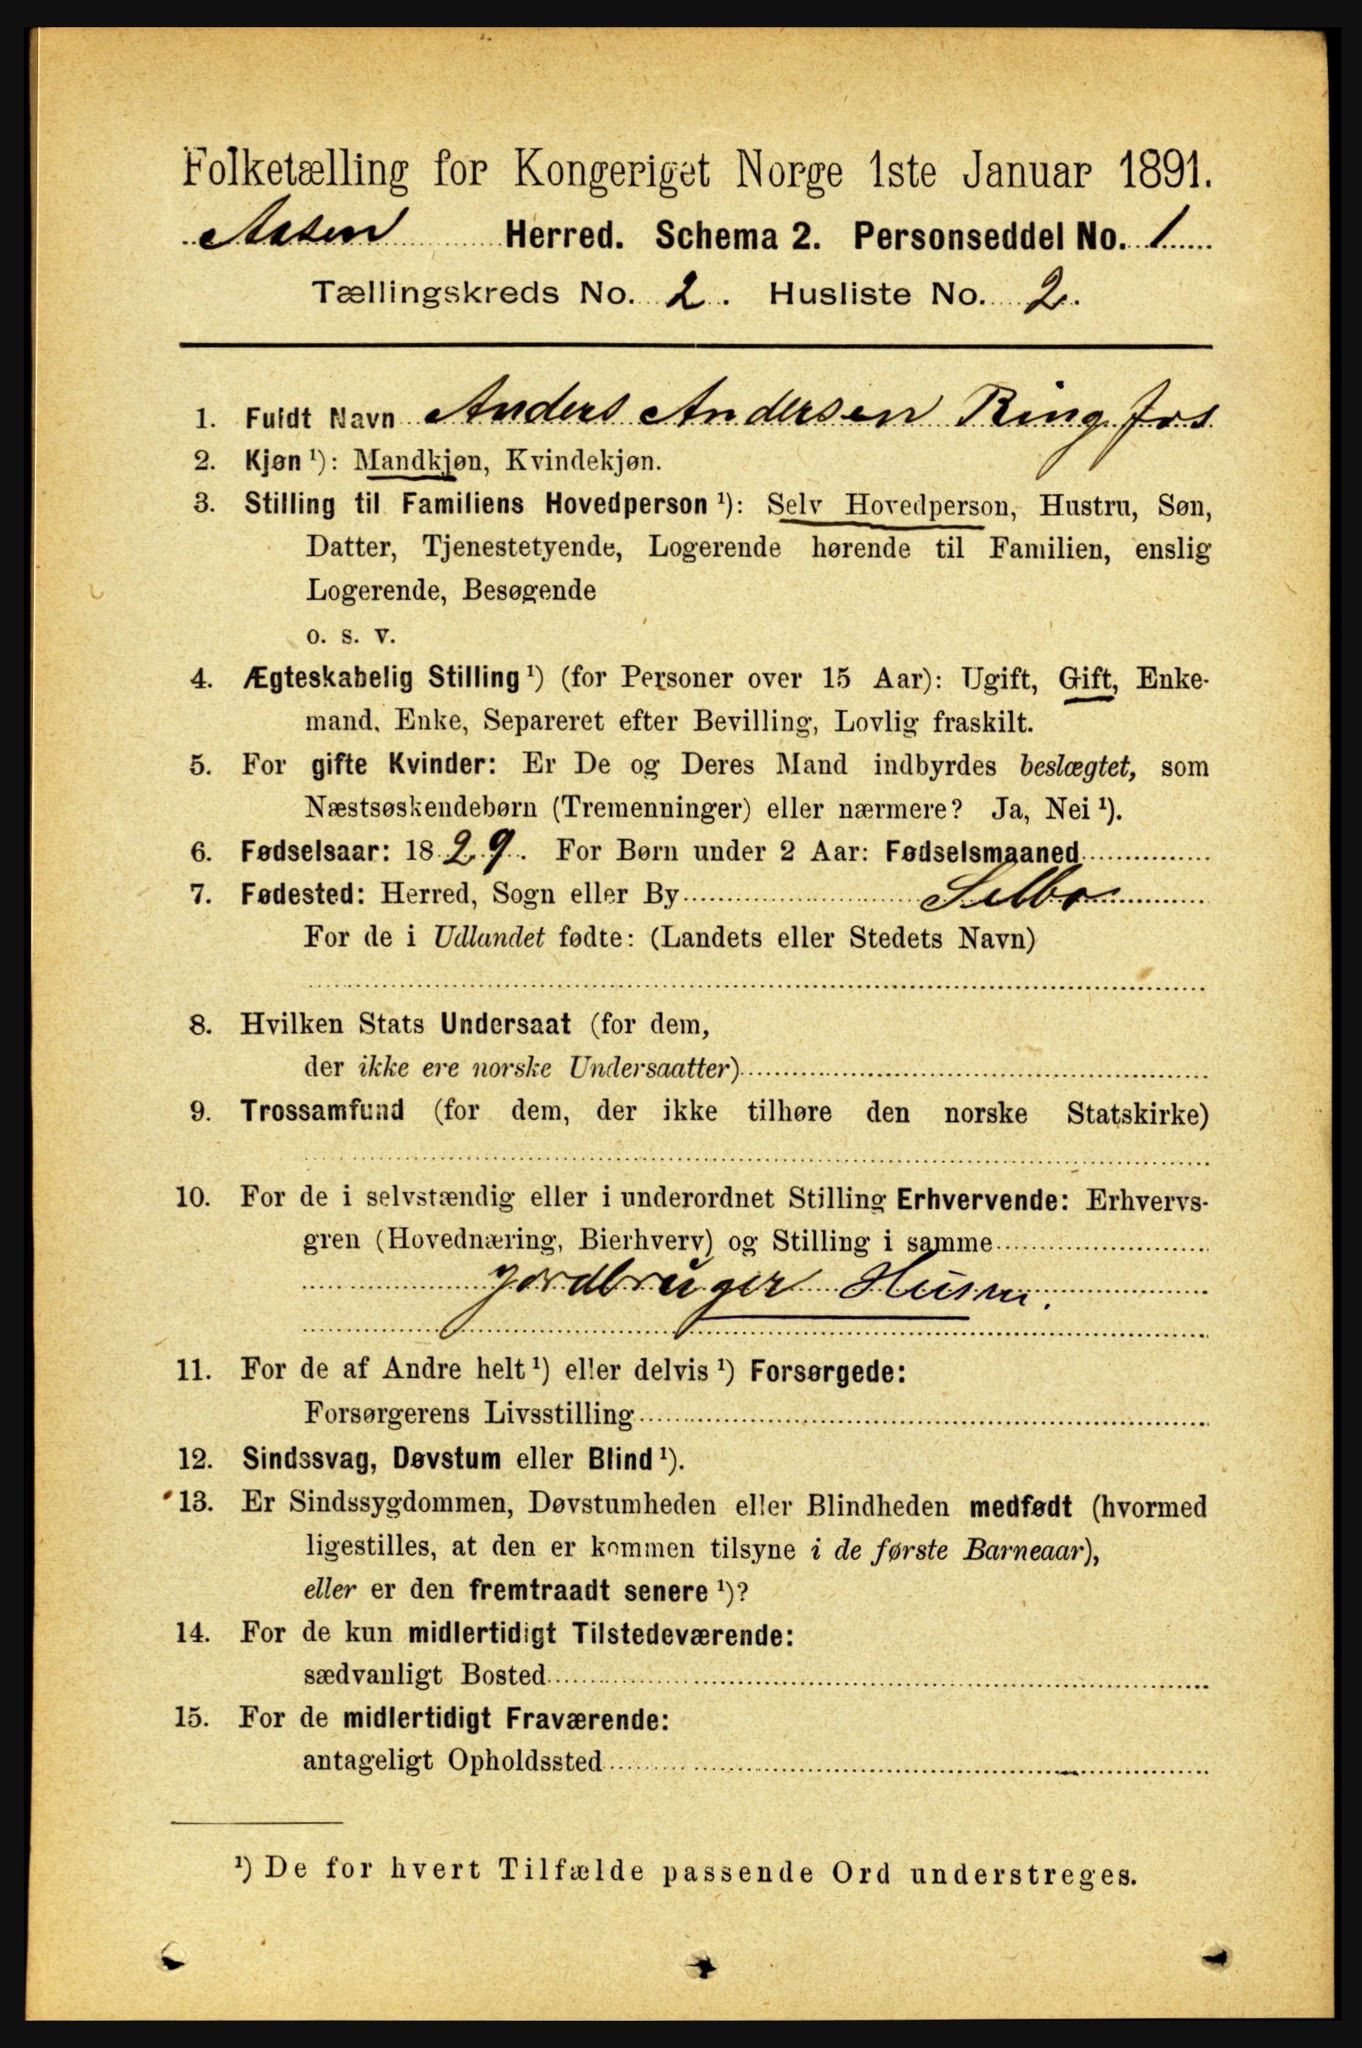 Folketælling for Kongeriget Norge 1ste Januar 1891.
Aasen Herred. Schema 2. Personseddel No. 1
Tællingskreds No. 2. Husliste No. 2.
1. Fuldt Navn Anders Andersen Ring fos
2. Kjøn ¹): Mandkjøn, Kvindekjøn.
3. Stilling til Familiens Hovedperson ¹): Selv Hovedperson, Hustru, Søn,
Datter, Tjenestetyende, Logerende hørende til Familien, enslig
Logerende, Besøgende
o. s. v.
4. Ægteskabelig Stilling ¹) (for Personer over 15 Aar): Ugift, Gift, Enke-
mand, Enke, Separeret efter Bevilling, Lovlig fraskilt.
5. For gifte Kvinder: Er De og Deres Mand indbyrdes beslægtet, som
Næstsøskendebørn (Tremenninger) eller nærmere? Ja, Nei ¹).
6. Fødselsaar: 1829. For Børn under 2 Aar: Fødselsmaaned
7. Fødested: Herred, Sogn eller By Selbo
For de i Udlandet fødte: (Landets eller Stedets Navn)
8. Hvilken Stats Undersaat (for dem,
der ikke ere norske Undersaatter)
9. Trossamfund (for dem, der ikke tilhøre den norske Statskirke)
10. For de i selvstændig eller i underordnet Stilling Erhvervende: Erhvervs-
gren (Hovednæring, Bierhverv) og Stilling i samme
Jordbruger Husm.
11. For de af Andre helt ¹) eller delvis ¹) Forsørgede:
Forsørgerens Livsstilling
12. Sindssvag, Døvstum eller Blind ¹).
13. Er Sindssygdommen, Døvstumheden eller Blindheden medfødt (hvormed
ligestilles, at den er kommen tilsyne i de første Barneaar),
eller er den fremtraadt senere ¹)?
14. For de kun midlertidigt Tilstedeværende:
sædvanligt Bosted
15. For de midlertidigt Fraværende:
antageligt Opholdssted
¹) De for hvert Tilfælde passende Ord understreges.